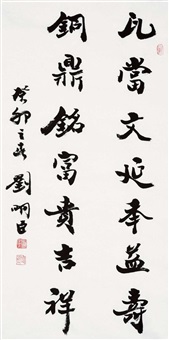 瓦當文延年益壽
銅鼎銘富貴吉祥
癸卯之春 劉